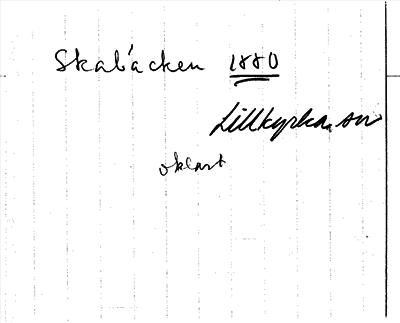 Skalbäcken 1880
Lillkyrka sn
oklart